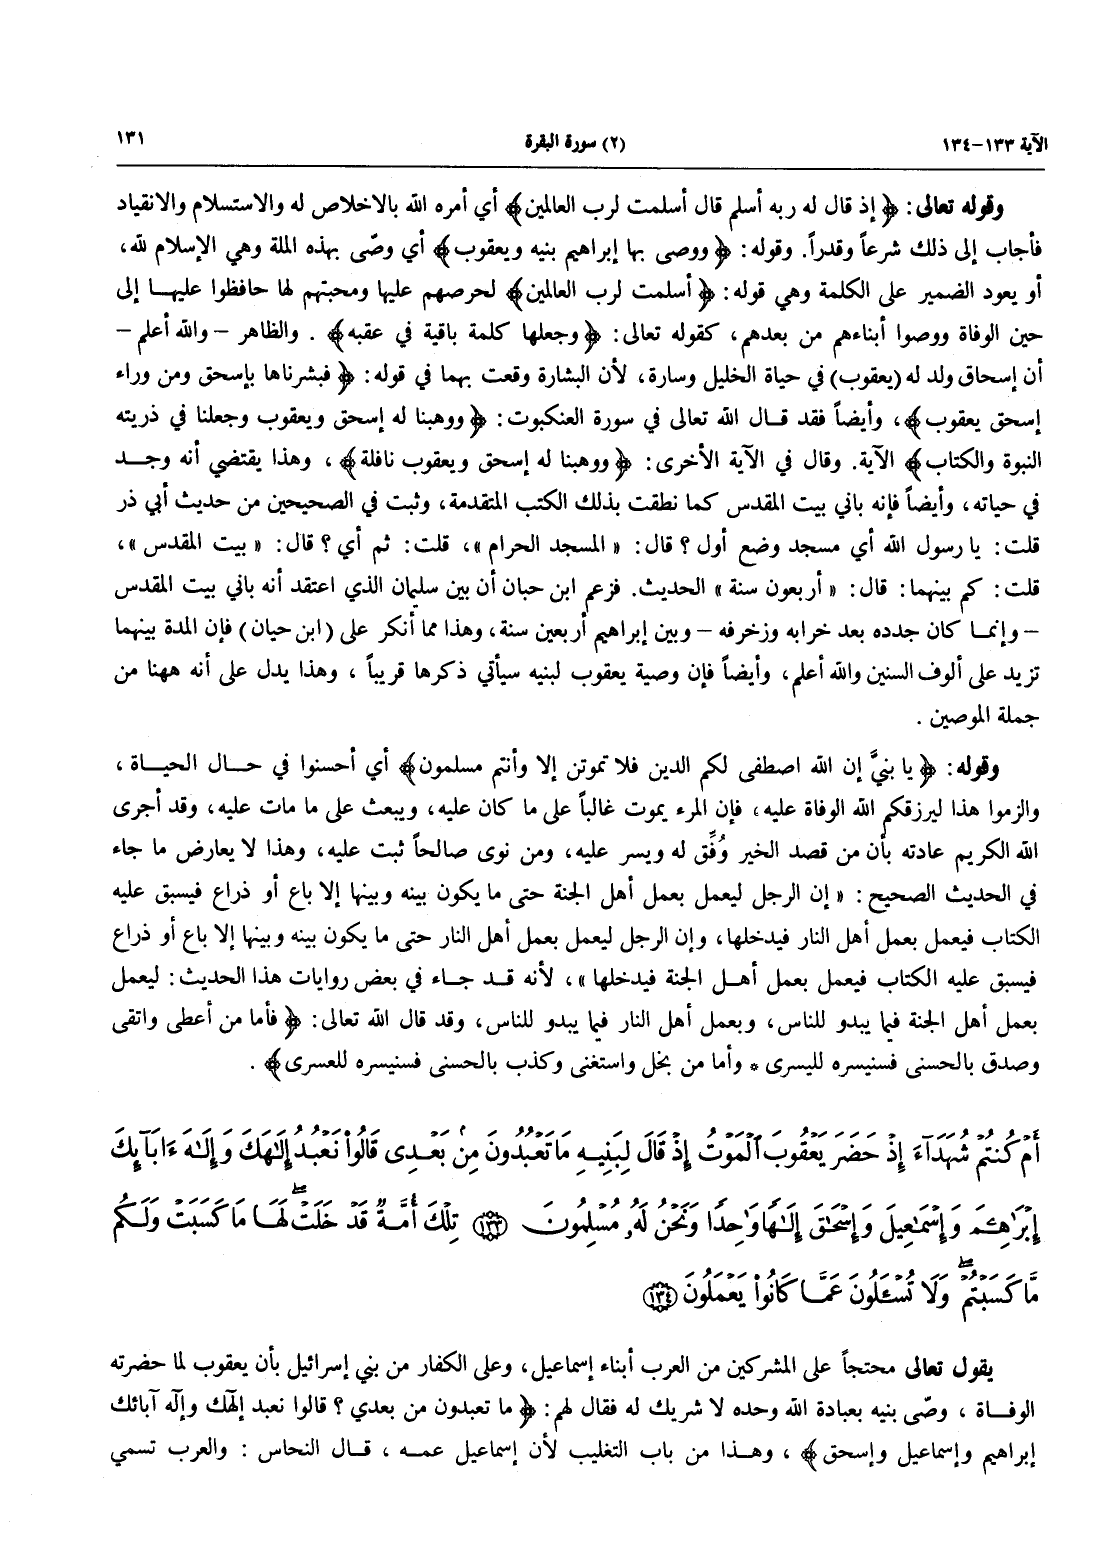 الآية ١٣٣-١٣٤ (٢) سورة البقرة ١٣١
وقوله تعالى: ﴿ إذ قال له ربه أسلم قال أسلمت لرب العالمين﴾ أي أمره الله بالاخلاص له والاستسلام والانقياد
فأجاب إلى ذلك شرعاً وقدراً. وقوله: ﴿ ووصى بها إبراهيم بنيه ويعقوب﴾ أي وصّى بهذه الملة وهي الإسلام لله،
أو يعود الضمير على الكلمة وهي قوله: ﴿ أسلمت لرب العالمين﴾ لحرصهم عليها ومحبتهم لها حافظوا عليها إلى
حين الوفاة ووصوا أبناءهم من بعدهم، كقوله تعالى: ﴿ وجعلها كلمة باقية في عقبه﴾ . والظاهر – والله أعلم –
أن إسحاق ولد له (يعقوب) في حياة الخليل وسارة، لأن البشارة وقعت بهما في قوله: ﴿ فبشرناها بإسحق ومن وراء
إسحق يعقوب﴾، وأيضاً فقد قال الله تعالى في سورة العنكبوت: ﴿ ووهبنا له إسحق ويعقوب وجعلنا في ذريته
النبوة والكتاب﴾ الآية. وقال في الآية الأخرى: ﴿ ووهبنا له إسحق ويعقوب نافلة﴾ ، وهذا يقتضي أنه وجد
في حياته، وأيضاً فإنه باني بيت المقدس كما نطقت بذلك الكتب المتقدمة، وثبت في الصحيحين من حديث أبي ذر
قلت: يا رسول الله أي مسجد وضع أول ؟ قال: « المسجد الحرام »، قلت: ثم أي ؟ قال: « بيت المقدس »،
قلت: كم بينهما: قال: « أربعون سنة » الحديث. فزعم ابن حبان أن بين سليمان الذي اعتقد أنه باني بيت المقدس
– وإنما كان جدده بعد خرابه وزخرفه – وبين إبراهيم أربعين سنة، وهذا مما أنكر على (ابن حيان) فإن المدة بينهما
تزيد على ألوف السنين والله أعلم، وأيضاً فإن وصية يعقوب لبنيه سيأتي ذكرها قريباً ، وهذا يدل على أنه ههنا من
جملة الموصين .
وقوله: ﴿ يا بنيَّ إن الله اصطفى لكم الدين فلا تموتن إلا وأنتم مسلمون﴾ أي أحسنوا في حال الحياة ،
والزموا هذا ليرزقكم الله الوفاة عليه، فإن المرء يموت غالباً على ما كان عليه، ويبعث على ما مات عليه، وقد أجرى
الله الكريم عادته بأن من قصد الخير وُفِّق له ويسر عليه، ومن نوى صالحاً ثبت عليه، وهذا لا يعارض ما جاء
في الحديث الصحيح: « إن الرجل ليعمل بعمل أهل الجنة حتى ما يكون بينه وبينها إلا باع أو ذراع فيسبق عليه
الكتاب فيعمل بعمل أهل النار فيدخلها، وإن الرجل ليعمل بعمل أهل النار حتى ما يكون بينه وبينها إلا باع أو ذراع
فيسبق عليه الكتاب فيعمل بعمل أهل الجنة فيدخلها »، لأنه قد جاء في بعض روايات هذا الحديث: ليعمل
بعمل أهل الجنة فيما يبدو للناس، وبعمل أهل النار فيما يبدو للناس، وقد قال الله تعالى: ﴿ فأما من أعطى واتقى
وصدق بالحسنى فسنيسره لليسرى * وأما من بخل واستغنى وكذب بالحسنى فسنيسره للعسرى﴾ .
أَمْ كُنتُمْ شُهَدَآءَ إِذْ حَضَرَ يَعْقُوبَ ٱلْمَوْتُ إِذْ قَالَ لِبَنِيهِ مَا تَعْبُدُونَ مِنۢ بَعْدِى قَالُوا۟ نَعْبُدُ إِلَٰهَكَ وَإِلَٰهَ ءَابَآئِكَ
إِبْرَٰهِـۧمَ وَإِسْمَٰعِيلَ وَإِسْحَٰقَ إِلَٰهًا وَٰحِدًا وَنَحْنُ لَهُۥ مُسْلِمُونَ ﴿١٣٣﴾ تِلْكَ أُمَّةٌ قَدْ خَلَتْ ۖ لَهَا مَا كَسَبَتْ وَلَكُم
مَّا كَسَبْتُمْ ۖ وَلَا تُسْـَٔلُونَ عَمَّا كَانُوا۟ يَعْمَلُونَ ﴿١٣٤﴾
يقول تعالى محتجاً على المشركين من العرب أبناء إسماعيل، وعلى الكفار من بني إسرائيل بأن يعقوب لما حضرته
الوفاة ، وصّى بنيه بعبادة الله وحده لا شريك له فقال لهم: ﴿ ما تعبدون من بعدي ؟ قالوا نعبد إلٓهك وإلٓه آبائك
إبراهيم وإسماعيل وإسحق﴾ ، وهذا من باب التغليب لأن إسماعيل عمه ، قال النحاس : والعرب تسمي